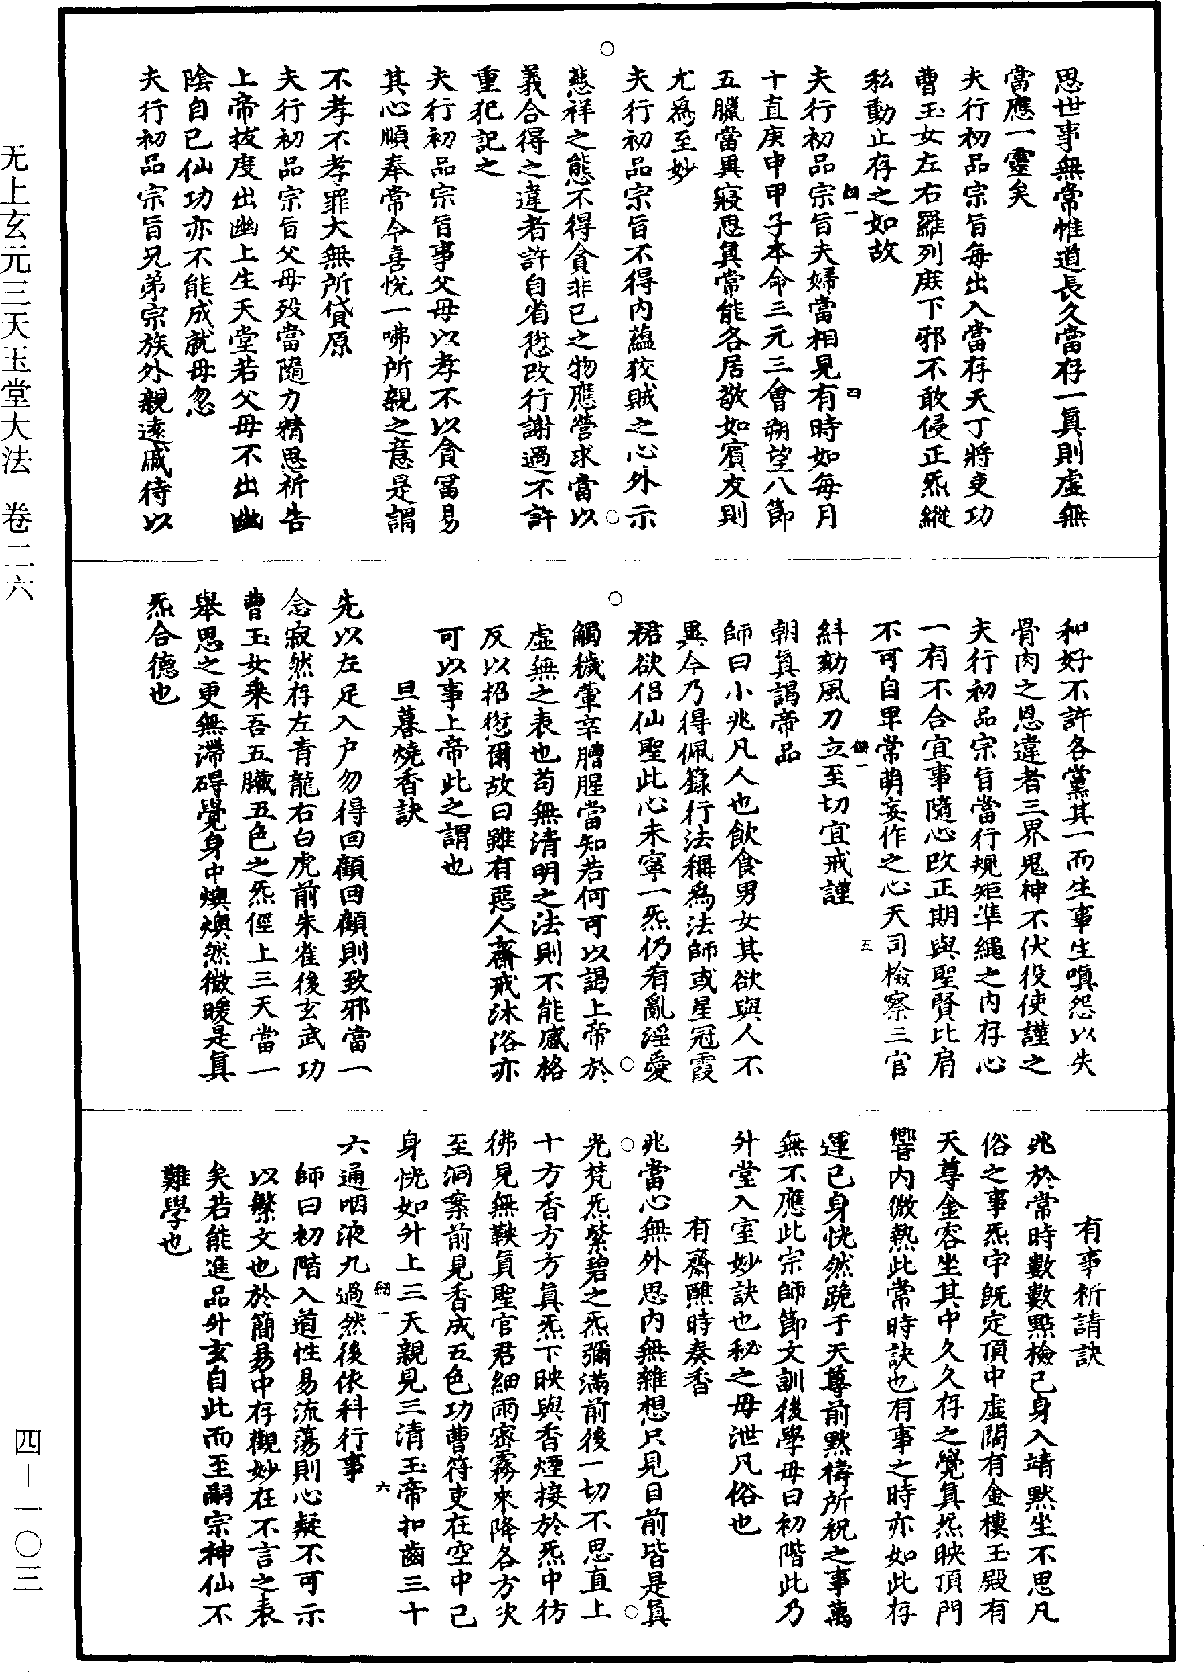 无上玄元三天玉堂大法　卷二六
思世事無常惟道長久當存一真則虛無
當應一靈矣
夫行初品宗旨每出入當存天丁將吏功
曹玉女左右羅列庭下邪不敢侵正炁縱
私動止存之如故
夫行初品宗旨夫婦當相見有時如每月
十直庚申甲子本命三元三會朔望八節
五臘當異寢思真常能各居敬如賓友則
尤為至妙
夫行初品宗旨不得內蘊狡賊之心外示
慈祥之態不得貪非己之物應營求當以
義合得之違者許自省愆改行謝過不許
重犯記之
夫行初品宗旨事父母以孝不以貪富易
其心順奉常令喜悅一咈所親之意是謂
不孝不孝罪大無所貸原
夫行初品宗旨父母歿當隨力精思祈告
上帝拔度出幽上生天堂若父母不出幽
陰自己仙功亦不能成就毋忽
夫行初品宗旨兄弟宗族外親遠戚待以
和好不許各黨其一而生事生嗔怨以失
骨肉之恩違者三界鬼神不伏役使謹之
夫行初品宗旨當行規矩準繩之內存心
一有不合宜事隨心改正期與聖賢比肩
不可自畢常萌妄作之心天司檢察三官
糾劾風刀立至切宜戒謹
朝真謁帝品
師曰小兆凡人也飲食男女其欲與人不
異今乃得佩籙行法稱為法師或星冠霞
裙欲侶仙聖此心未寧一炁仍有亂淫愛
觸穢葷辛膻腥當知若何可以謁上帝於
虛無之表也苟無清明之法則不能感格
反以招愆爾故曰雖有惡人齋戒沐浴亦
可以事上帝此之謂也
旦暮燒香訣
先以左足入戶勿得回顧回顧則致邪當一
念寂然存左青龍右白虎前朱雀後玄武功
曹玉女乘吾五臟五色之炁徑上三天當一
舉思之更無滯碍覺身中燠燠然微暖是真
炁合德也
有事祈請訣
兆於常時數數點檢己身入靖默坐不思凡
俗之事炁宇既定頂中虛闊有金樓玉殿有
天尊金容坐其中久久存之覺真炁映頂門
響內微熱此常時訣也有事之時亦如此存
運己身恍然跪于天尊前默禱所祝之事萬
無不應此宗師節文訓後學毋曰初階此乃
升堂入室妙訣也秘之毋泄凡俗也
有齋醮時奏香
兆當心無外思內無雜想只見目前皆是真
光梵炁蒼碧之炁彌滿前後一切不思直上
十方香方方真炁下映與香煙接於炁中彷
彿見無鞅真聖官君細雨密霧來降各方次
至洞案前見香成五色功曹符吏在空中己
身恍如升上三天親見三清玉帝扣齒三十
六通咽液九過然後依科行事
師曰初階入道性易流蕩則心疑不可示
以繁文也於簡易中存觀妙在不言之表
矣若能進品升玄自此而至嗣宗神仙不
難學也
四—一〇三